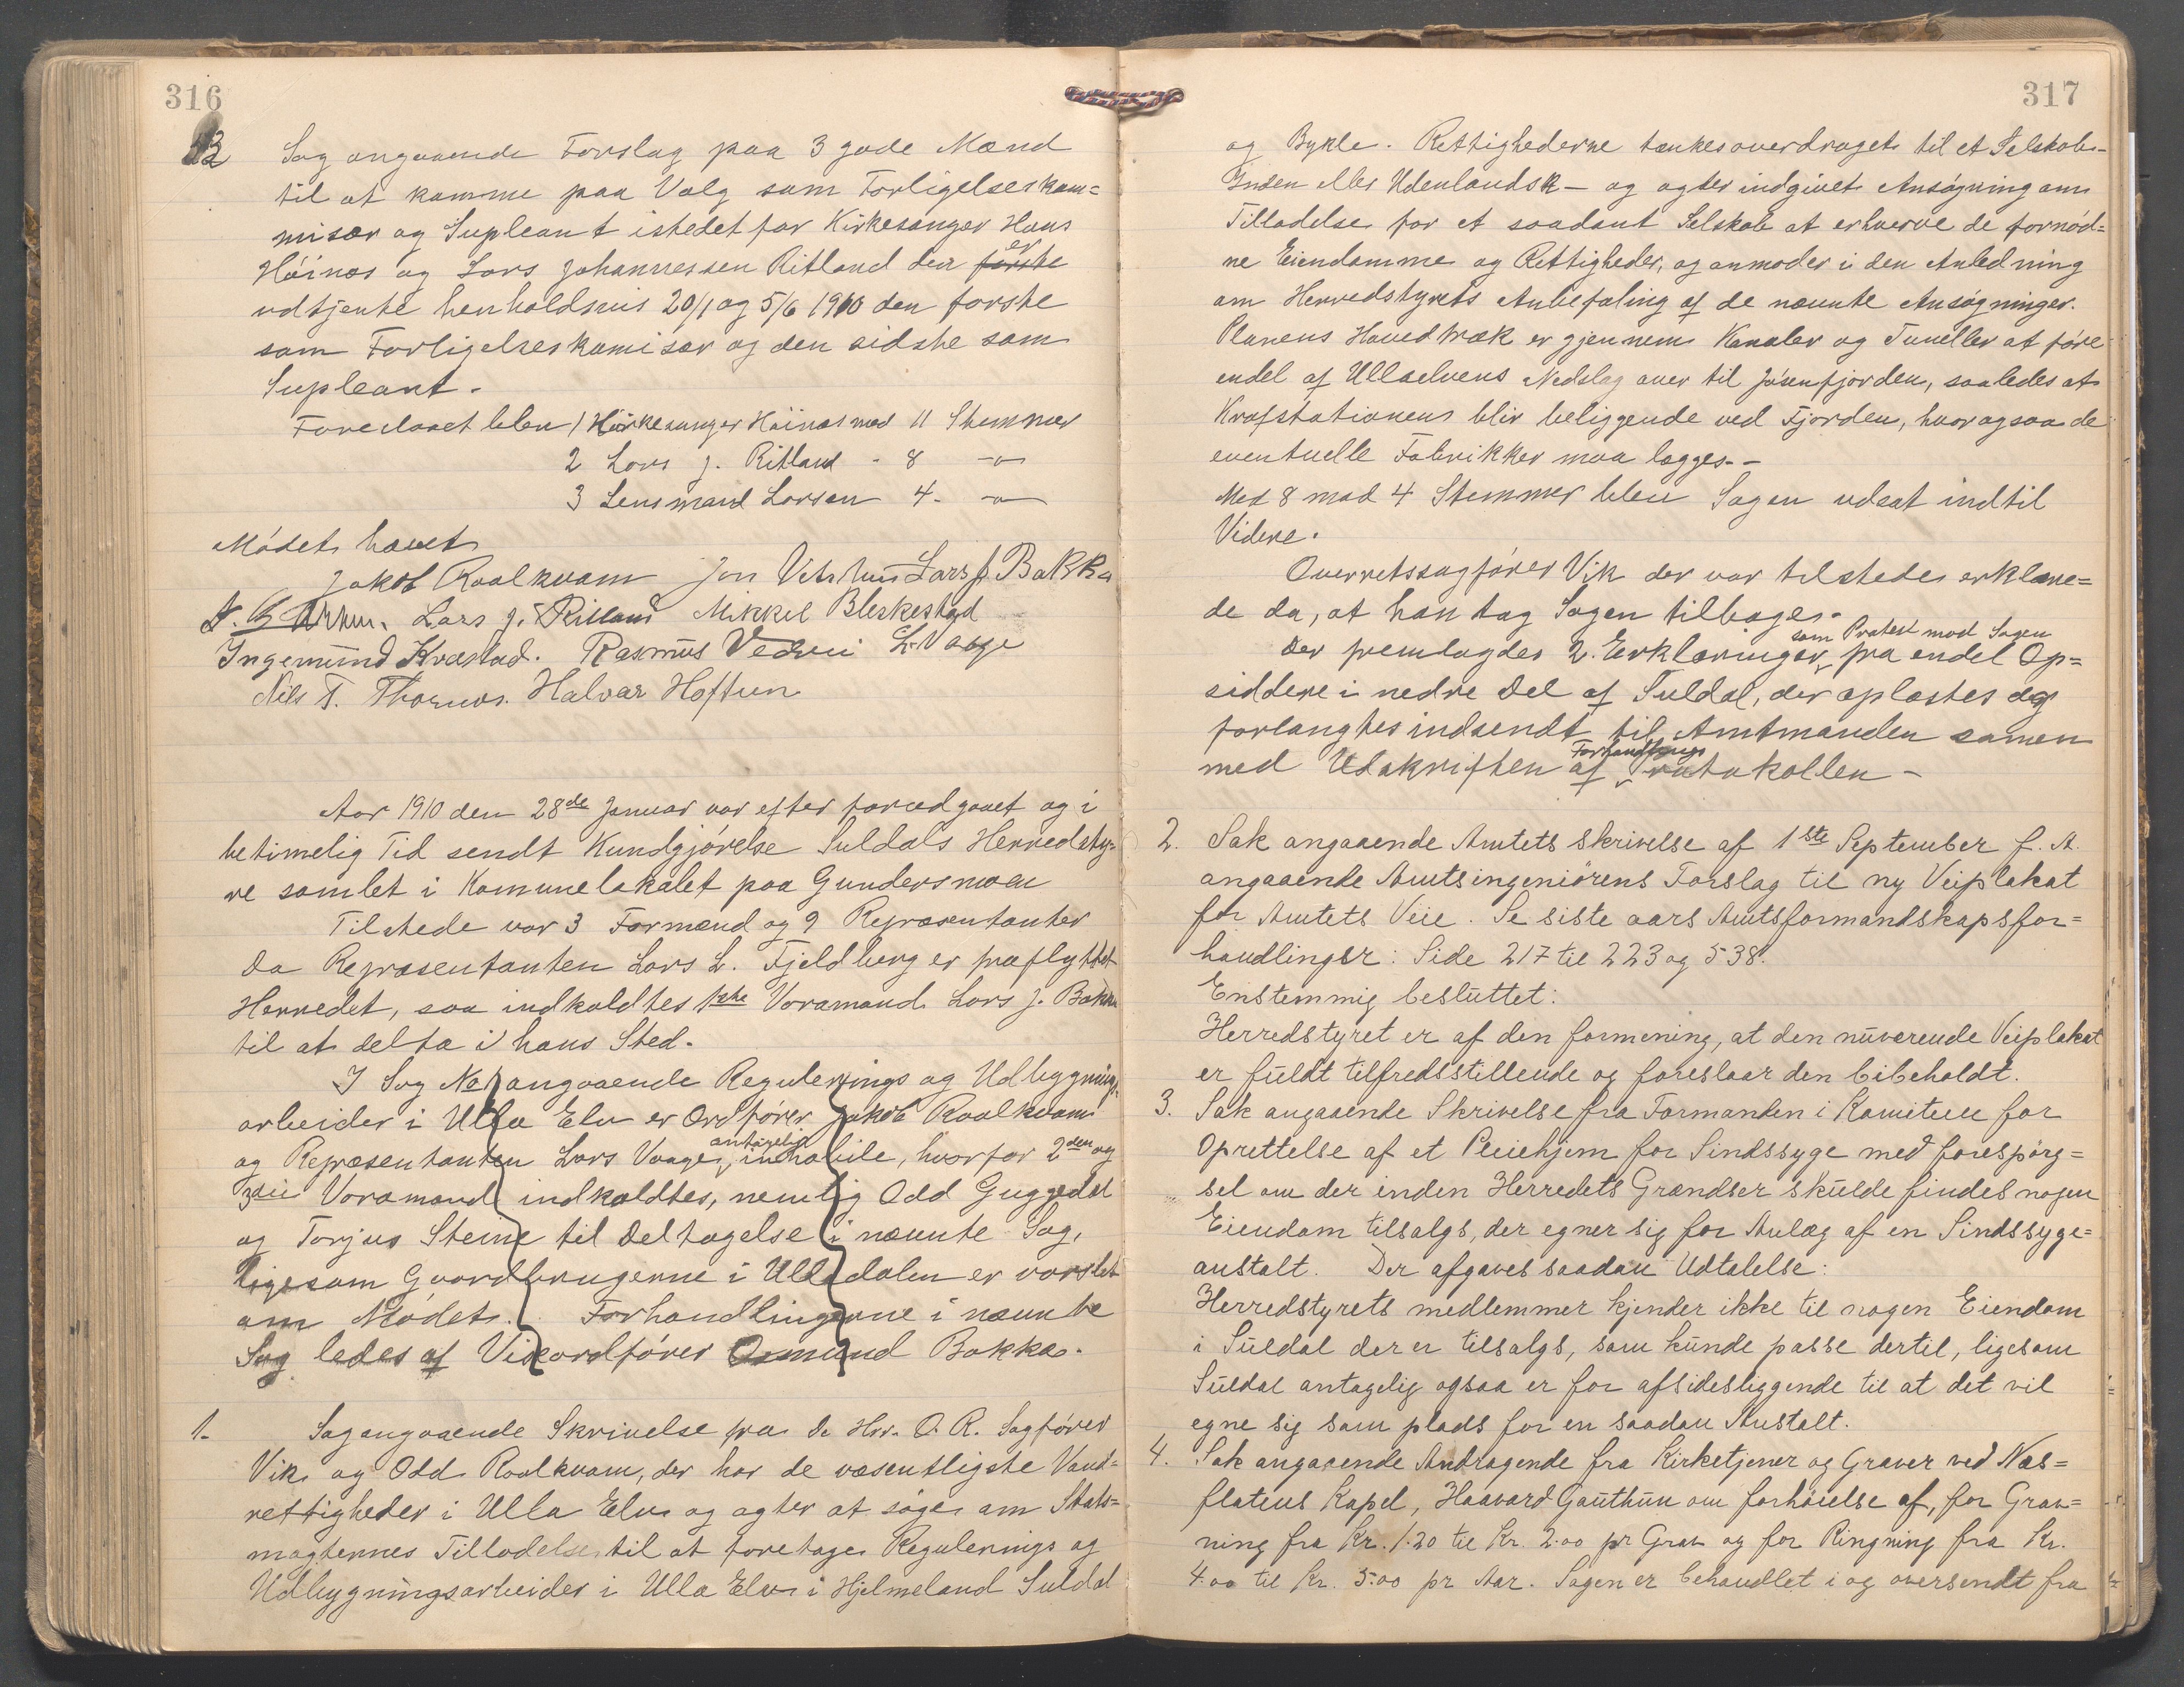 316
13 Sag angaaende Forslag paa 3 gode Mænd
til at komme paa Valg som Forligelseskom=
misær og Supleant istedet for Kirkesanger Hans
Höinæs og Lars Johannessen Ritland der er
udtjente henholdsvis 20/1 og 5/6 1910 den forste
som Forligelseskomisær og den sidste som
Supleant.
Foreslaaet blev 1 Kirkesanger Höinæs med 11 Stemmer
2 Lars J. Ritland - 8 -"-
3 Lensmand Larsen 4. -"-
Mödet hævet
Jakob Roalkvam Jon Vetrhus Lars J. Bakka
Lars J. Ritland Mikkel Bleskestad
Ingemund Kvæstad. Rasmus Vedvii L. Vaage
Nils T. Thornæs. Halvar Hoftun
Aar 1910 den 28de Januar var efter foreedgaaet og i
betimelig Tid sendt Kundgjörelse Suldals Herredsty=
re samlet i Komunelokalet paa Gundersmoen
Tilstede var 3 Formænd og 9 Repræsentanter
Da Repræsentanten Lars L. Fjeldberg er fraflyttet
Herredet, saa indkaldtes 1ste Varamand Lars J. Bakka
til at delta i hans Sted.
I Sag No 1 angaaende Regulerings og Udbygnings
arbeider i Ulla Elv er Ordförer Jakob Roalkvam
og Repræsentanten Lars Vaage antagelig inhabile, hvorfor 2den og
3die Varamand indkaldtes, nemlig Odd Guggedal
og Torjus Steine til Deltagelse i nævnte Sag,
ligesom Gaardbrugerne i Ulladalen er varslet
om Mödet. Forhandlingerne i nævnte
Sag ledes af Viseordförer Osmund Bakka.
1. Sag angaaende Skrivelse fra de Hrr. O. R. Sagförer
Vik og Odd Roalkvam, der har de væsentligste Vand=
rettigheder i Ulla Elv og agter at söge om Stats=
magternes Tilladelse til at foretage Regulerings og
Udbygningsarbeider i Ulla Elv i Hjelmeland Suldal
317
og Bykle. Rettighederne tænkes overdraget til et Selskab –
Inden eller Udenlandsk – og agter indgivet Ansögning om
Tilladelse for et saadant Selskab at erhverve de fornöd=
ne Eiendomme og Rettigheder, og anmoder i den Anledning
om Herredstyrets Anbefaling af de nævnte Ansögninger.
Planens Hovedtræk er gjennem Kanaler og Tuneller at före
endel af Ullaelvens Nedslag over til Jösenfjorden, saaledes at
Krafstationens blir beliggende ved Fjorden, hvor ogsaa de
eventuelle Fabrikker maa lægges. –
Med 8 mod 4 Stemmer blev Sagen udsat indtil
Videre.
Overretssagförer Vik der var tilstede erklære=
de da, at han tog Sagen tilbage.
Der fremlagdes 2. Erklæringer som Protest mod Sagen fra endel Op=
siddere i nedre Del af Suldal, der oplæstes og
forlangtes indsendt til Amtmanden samen
med Udskriften af Forhandlings Protokollen –
2. Sak angaaende Amtets skrivelse af 1ste September f. A.
angaaende Amtsingeniörens Forslag til ny Veiplakat
for Amtets Veie. Se siste aars Amtsformandskapsfor=
handlinger: Side 217 til 223 og 538.
Enstemmig besluttet:
Herredstyret er af den formening, at den nuværende Veiplakat
er fuldt tilfredsstillende og foreslaar den bibeholdt.
3. Sak angaaende Skrivelse fra Formanden i Komiteen for
Oprettelse af et Pleiehjem for Sindssyge med forespörg=
sel om der inden Herredets Grændser skulde findes nogen
Eiendom tilsalgs, der egner sig for Anlæg af en Sindssyge=
anstalt. Der afgaves saadan Udtalelse:
Herredstyrets medlemmer kjender ikke til nogen Eiendom
i Suldal der er tilsalgs, som kunde passe dertil, ligesom
Suldal antagelig ogsaa er for afsidesliggende til at det vil
egne sig som plads for en saadan Anstalt.
4. Sak angaaende Andragende fra Kirketjener og Graver ved Næs=
flatens Kapel, Haavard Gauthun om forhöielse af, for Grav=
ning fra Kr. 1.20 til Kr. 2.00 pr Grav og for Ringning fra Kr.
4.00 til Kr. 5.00 pr Aar. Sagen er behandlet i og oversendt fra